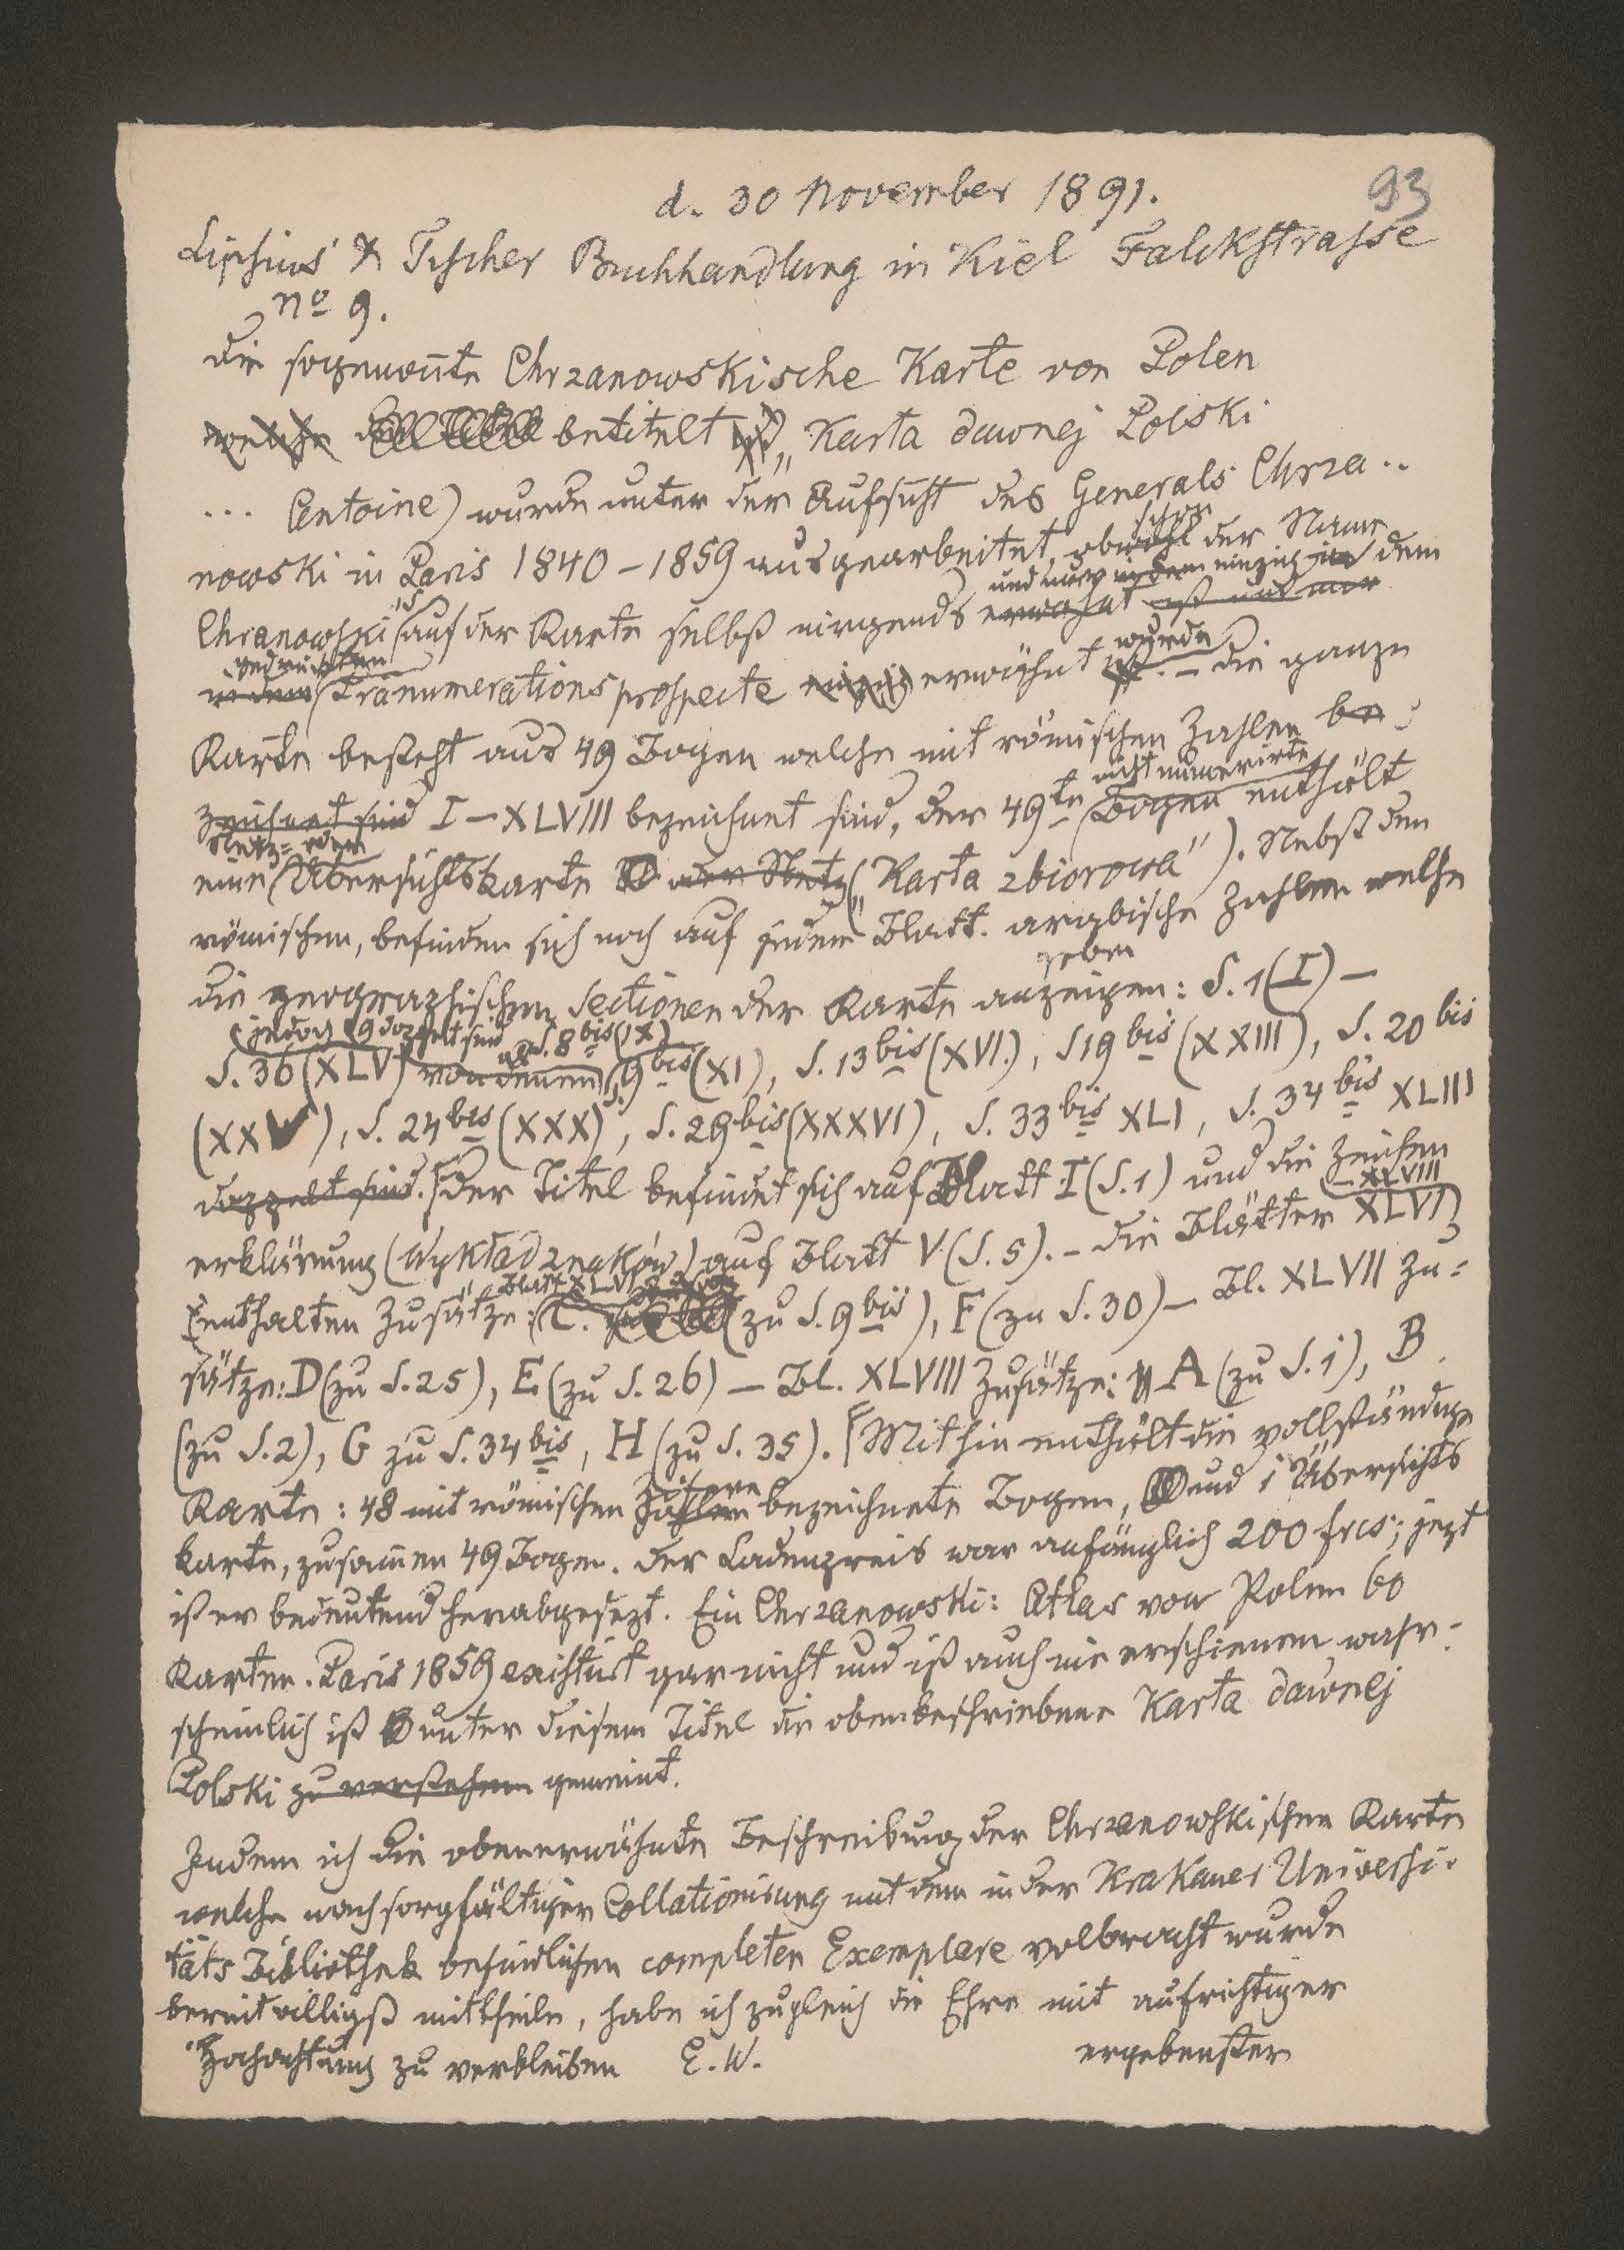 93
d. 30 November 1891.
Lipsius & Tischer Buchhandlung in Kiel Falckstrasse
No 9.
Die sogenannte Chrzanowskische Karte von Polen
welche betitelt ist „Karta dawnej Polski
... Antoine) wurde unter der Aufsicht des Generals Chrza..
schon
nowski in Paris 1840–1859 ausgearbeitet, obwohl der Name
und nur in dem einzig in dem
Chranowski auf der Karte selbst nirgends erwähnt ist und nur
gedruckten wurde
in dem Pränumerationsprospecte einzig erwähnt ist. – Die ganze
Karte besteht aus 49 Bogen welche mit römischen Zahlen be-
nicht numerirte
zeichnet sind I–XLVIII bezeichnet sind, der 49te Bogen enthält
Netz- oder
eine Übersichtskarte oder Netz („Karta zbiorowa"). Nebst den
römischen, befinden sich noch auf jedem Blatt arabische Zahlen welche
geben
die geographischen Sectionen der Karte anzeigen: S. 1 (I) –
(jedoch 9 doppelt sind als S. 8bis (IX)
S. 36 (XLV) von denen S. 9bis (XI), S. 13bis (XVI.), S 19bis (XXIII), S. 20bis
(XXV), S. 24bis (XXX), S. 29bis (XXXVI), S. 33bis XLI, S. 34bis XLIII
doppelt sind. Der Titel befindet sich auf Blatt I (S. 1) und die Zeichen
– XLVIII
erklärung (Wykład znaków) auf Blatt V (S. 5). – Die Blätter XLVI
Blatt XLVI
enthalten Zusätze: C. (zu S. 9bis), F (zu S. 30) – Bl. XLVII Zu-
sätze: D (zu S. 25), E. (zu S. 26) – Bl. XLVIII Zusätze: A (zu S. 1), B
(zu S. 2), G zu S. 34bis, H (zu S. 35). Mithin enthält die vollständige
Ziffern
Karte: 48 mit römischen Zahlen bezeichnete Bogen, und 1 Übersichts
karte, zusammen 49 Bogen. Der Ladenpreis war anfänglich 200 frcs; jezt
ist er bedeutend herabgesezt. Ein Chrzanowski: Atlas von Polen 60
Karten. Paris 1859 existirt gar nicht und ist auch nie erschienen wahr-
scheinlich ist unter diesem Titel die obenbeschriebene Karta dawnej
Polski zu verstehen gemeint.
Indem ich die obenerwähnte Beschreibung der Chrzanowskischen Karte
welche nach sorgfältiger Collationirung mit dem in der Krakauer Universi-
täts Bibliothek befindlichen completen Exemplare vollbracht wurde
bereitwilligst mittheile, habe ich zugleich die Ehre mit aufrichtiger
Hochachtung zu verbleiben E. W. ergebenster